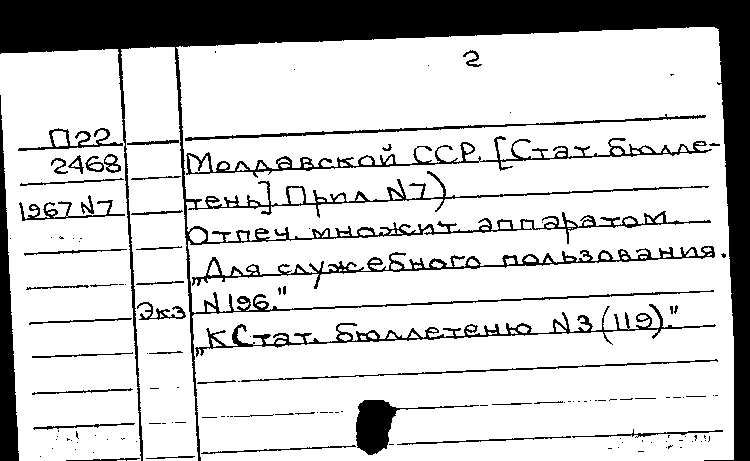 2
П22
2468
1967 N7
Экз
Молдавской ССР. [Стат. бюлле-
тень]. Прил. N7)
Отпеч. множит. аппаратом.
„Для служебного пользования.
N196."
„К Стат. бюллетеню N3 (119)."